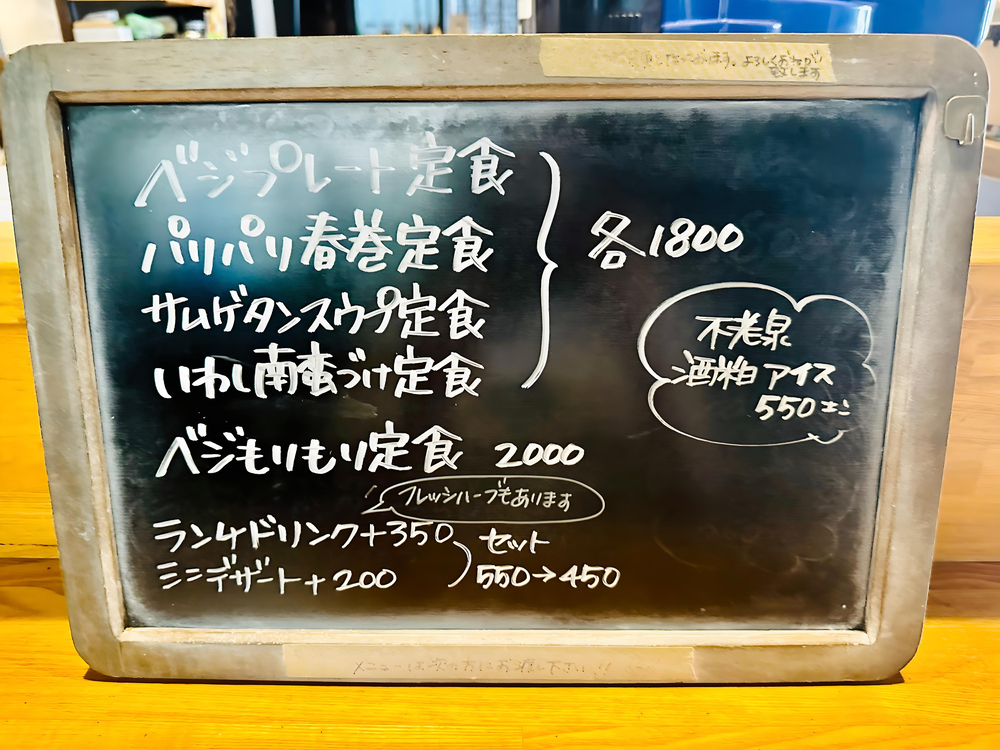 よろしくおねがい
致します
ベジプレート定食
パリパリ春巻定食
サムゲタンスウプ定食
いわし南蛮づけ定食
各1800
不老泉
酒粕アイス
550
ベジもりもり定食 2000
フレッシハーブもあります
ランチドリンク+350
ミニデザート+200
セット
550→450
メニューは次の方にお渡し下さい!!